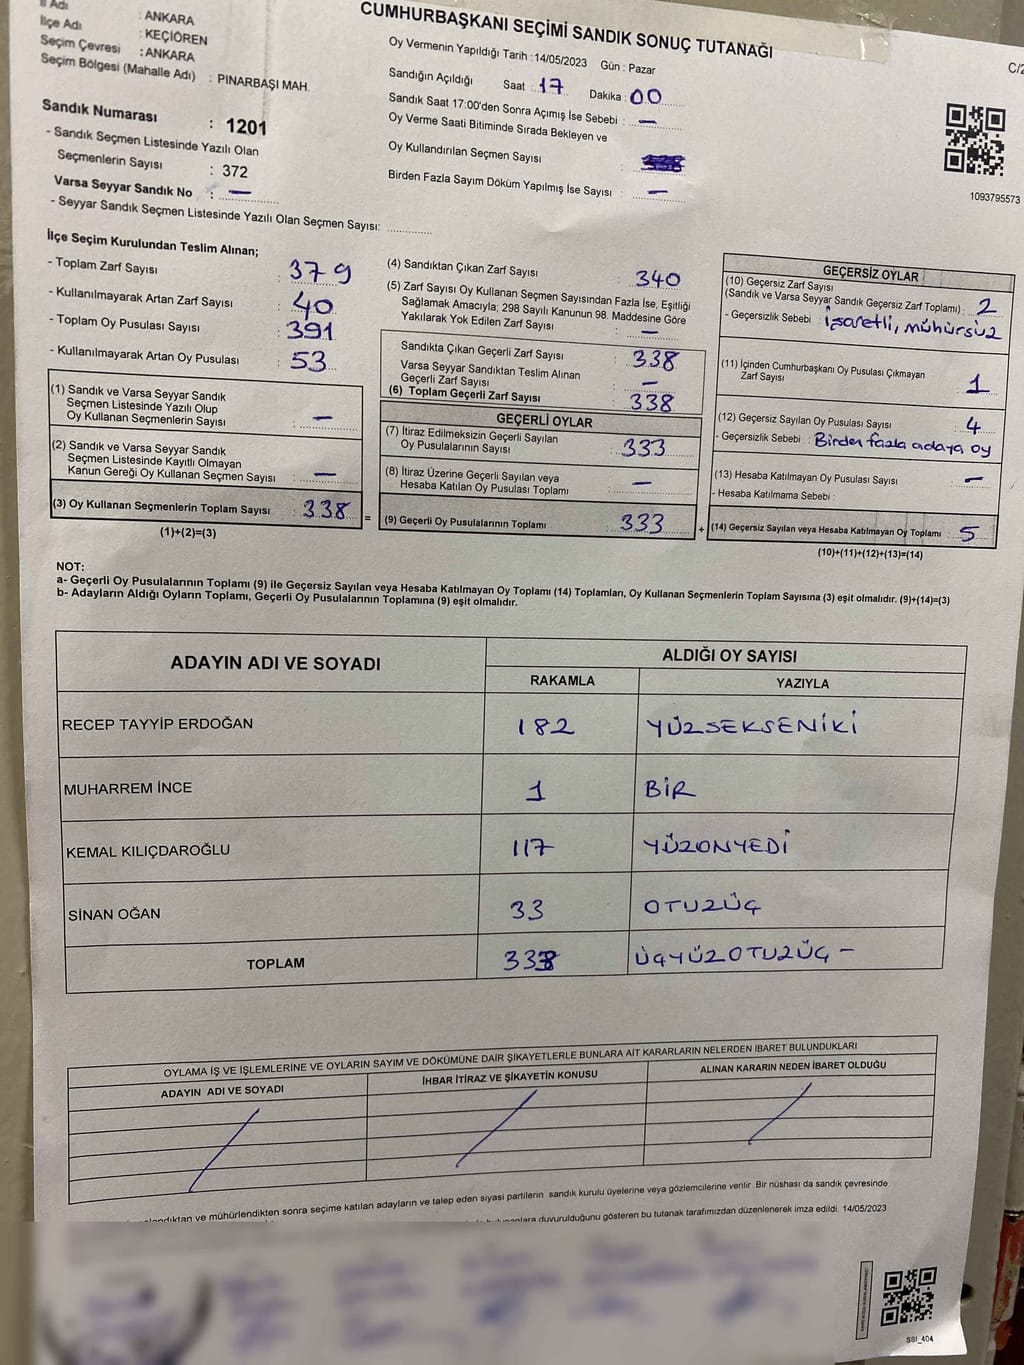 İl Adı : ANKARA
İlçe Adı : KEÇİÖREN
Seçim Çevresi : ANKARA
Seçim Bölgesi (Mahalle Adı) : PINARBAŞI MAH.
CUMHURBAŞKANI SEÇİMİ SANDIK SONUÇ TUTANAĞI
Oy Vermenin Yapıldığı Tarih : 14/05/2023 Gün : Pazar
Sandığın Açıldığı Saat : 17 Dakika : 00
Sandık Saat 17:00'den Sonra Açımış İse Sebebi : —
Oy Verme Saati Bitiminde Sırada Bekleyen ve
Oy Kullandırılan Seçmen Sayısı :
Birden Fazla Sayım Döküm Yapılmış İse Sayısı : —
C/2
1093795573
Sandık Numarası : 1201
- Sandık Seçmen Listesinde Yazılı Olan
Seçmenlerin Sayısı : 372
Varsa Seyyar Sandık No : —
- Seyyar Sandık Seçmen Listesinde Yazılı Olan Seçmen Sayısı: ............
İlçe Seçim Kurulundan Teslim Alınan;
- Toplam Zarf Sayısı : 379
- Kullanılmayarak Artan Zarf Sayısı : 40
- Toplam Oy Pusulası Sayısı : 391
- Kullanılmayarak Artan Oy Pusulası : 53
(1) Sandık ve Varsa Seyyar Sandık
Seçmen Listesinde Yazılı Olup
Oy Kullanan Seçmenlerin Sayısı : —
(2) Sandık ve Varsa Seyyar Sandık
Seçmen Listesinde Kayıtlı Olmayan
Kanun Gereği Oy Kullanan Seçmen Sayısı : —
(3) Oy Kullanan Seçmenlerin Toplam Sayısı : 338 =
(1)+(2)=(3)
(4) Sandıktan Çıkan Zarf Sayısı : 340
(5) Zarf Sayısı Oy Kullanan Seçmen Sayısından Fazla İse, Eşitliği
Sağlamak Amacıyla; 298 Sayılı Kanunun 98. Maddesine Göre
Yakılarak Yok Edilen Zarf Sayısı : —
Sandıkta Çıkan Geçerli Zarf Sayısı : 338
Varsa Seyyar Sandıktan Teslim Alınan
Geçerli Zarf Sayısı : —
(6) Toplam Geçerli Zarf Sayısı : 338
GEÇERLİ OYLAR
(7) İtiraz Edilmeksizin Geçerli Sayılan
Oy Pusulalarının Sayısı : 333
(8) İtiraz Üzerine Geçerli Sayılan veya
Hesaba Katılan Oy Pusulası Toplamı : —
(9) Geçerli Oy Pusulalarının Toplamı : 333 +
GEÇERSİZ OYLAR
(10) Geçersiz Zarf Sayısı
(Sandık ve Varsa Seyyar Sandık Geçersiz Zarf Toplamı) : 2
- Geçersizlik Sebebi : İşaretli, mühürsüz
(11) İçinden Cumhurbaşkanı Oy Pusulası Çıkmayan
Zarf Sayısı : 1
(12) Geçersiz Sayılan Oy Pusulası Sayısı : 4
- Geçersizlik Sebebi : Birden fazla adaya oy
(13) Hesaba Katılmayan Oy Pusulası Sayısı : —
- Hesaba Katılmama Sebebi :
(14) Geçersiz Sayılan veya Hesaba Katılmayan Oy Toplamı : 5
(10)+(11)+(12)+(13)=(14)
NOT:
a- Geçerli Oy Pusulalarının Toplamı (9) ile Geçersiz Sayılan veya Hesaba Katılmayan Oy Toplamı (14) Toplamları, Oy Kullanan Seçmenlerin Toplam Sayısına (3) eşit olmalıdır. (9)+(14)=(3)
b- Adayların Aldığı Oyların Toplamı, Geçerli Oy Pusulalarının Toplamına (9) eşit olmalıdır.
ADAYIN ADI VE SOYADI ALDIĞI OY SAYISI
RAKAMLA YAZIYLA
RECEP TAYYİP ERDOĞAN 182 YÜZSEKSENİKİ
MUHARREM İNCE 1 BİR
KEMAL KILIÇDAROĞLU 117 YÜZONYEDİ
SİNAN OĞAN 33 OTUZÜÇ
TOPLAM 333 ÜÇYÜZOTUZÜÇ -
OYLAMA İŞ VE İŞLEMLERİNE VE OYLARIN SAYIM VE DÖKÜMÜNE DAİR ŞİKAYETLERLE BUNLARA AİT KARARLARIN NELERDEN İBARET BULUNDUKLARI
ADAYIN ADI VE SOYADI İHBAR İTİRAZ VE ŞİKAYETİN KONUSU ALINAN KARARIN NEDEN İBARET OLDUĞU
ve mühürlendikten sonra seçime katılan adayların ve talep eden siyasi partilerin sandık kurulu üyelerine veya gözlemcilerine verilir. Bir nüshası da sandık çevresinde
duyurulduğunu gösteren bu tutanak tarafımızdan düzenlenerek imza edildi. 14/05/2023
SSI_404